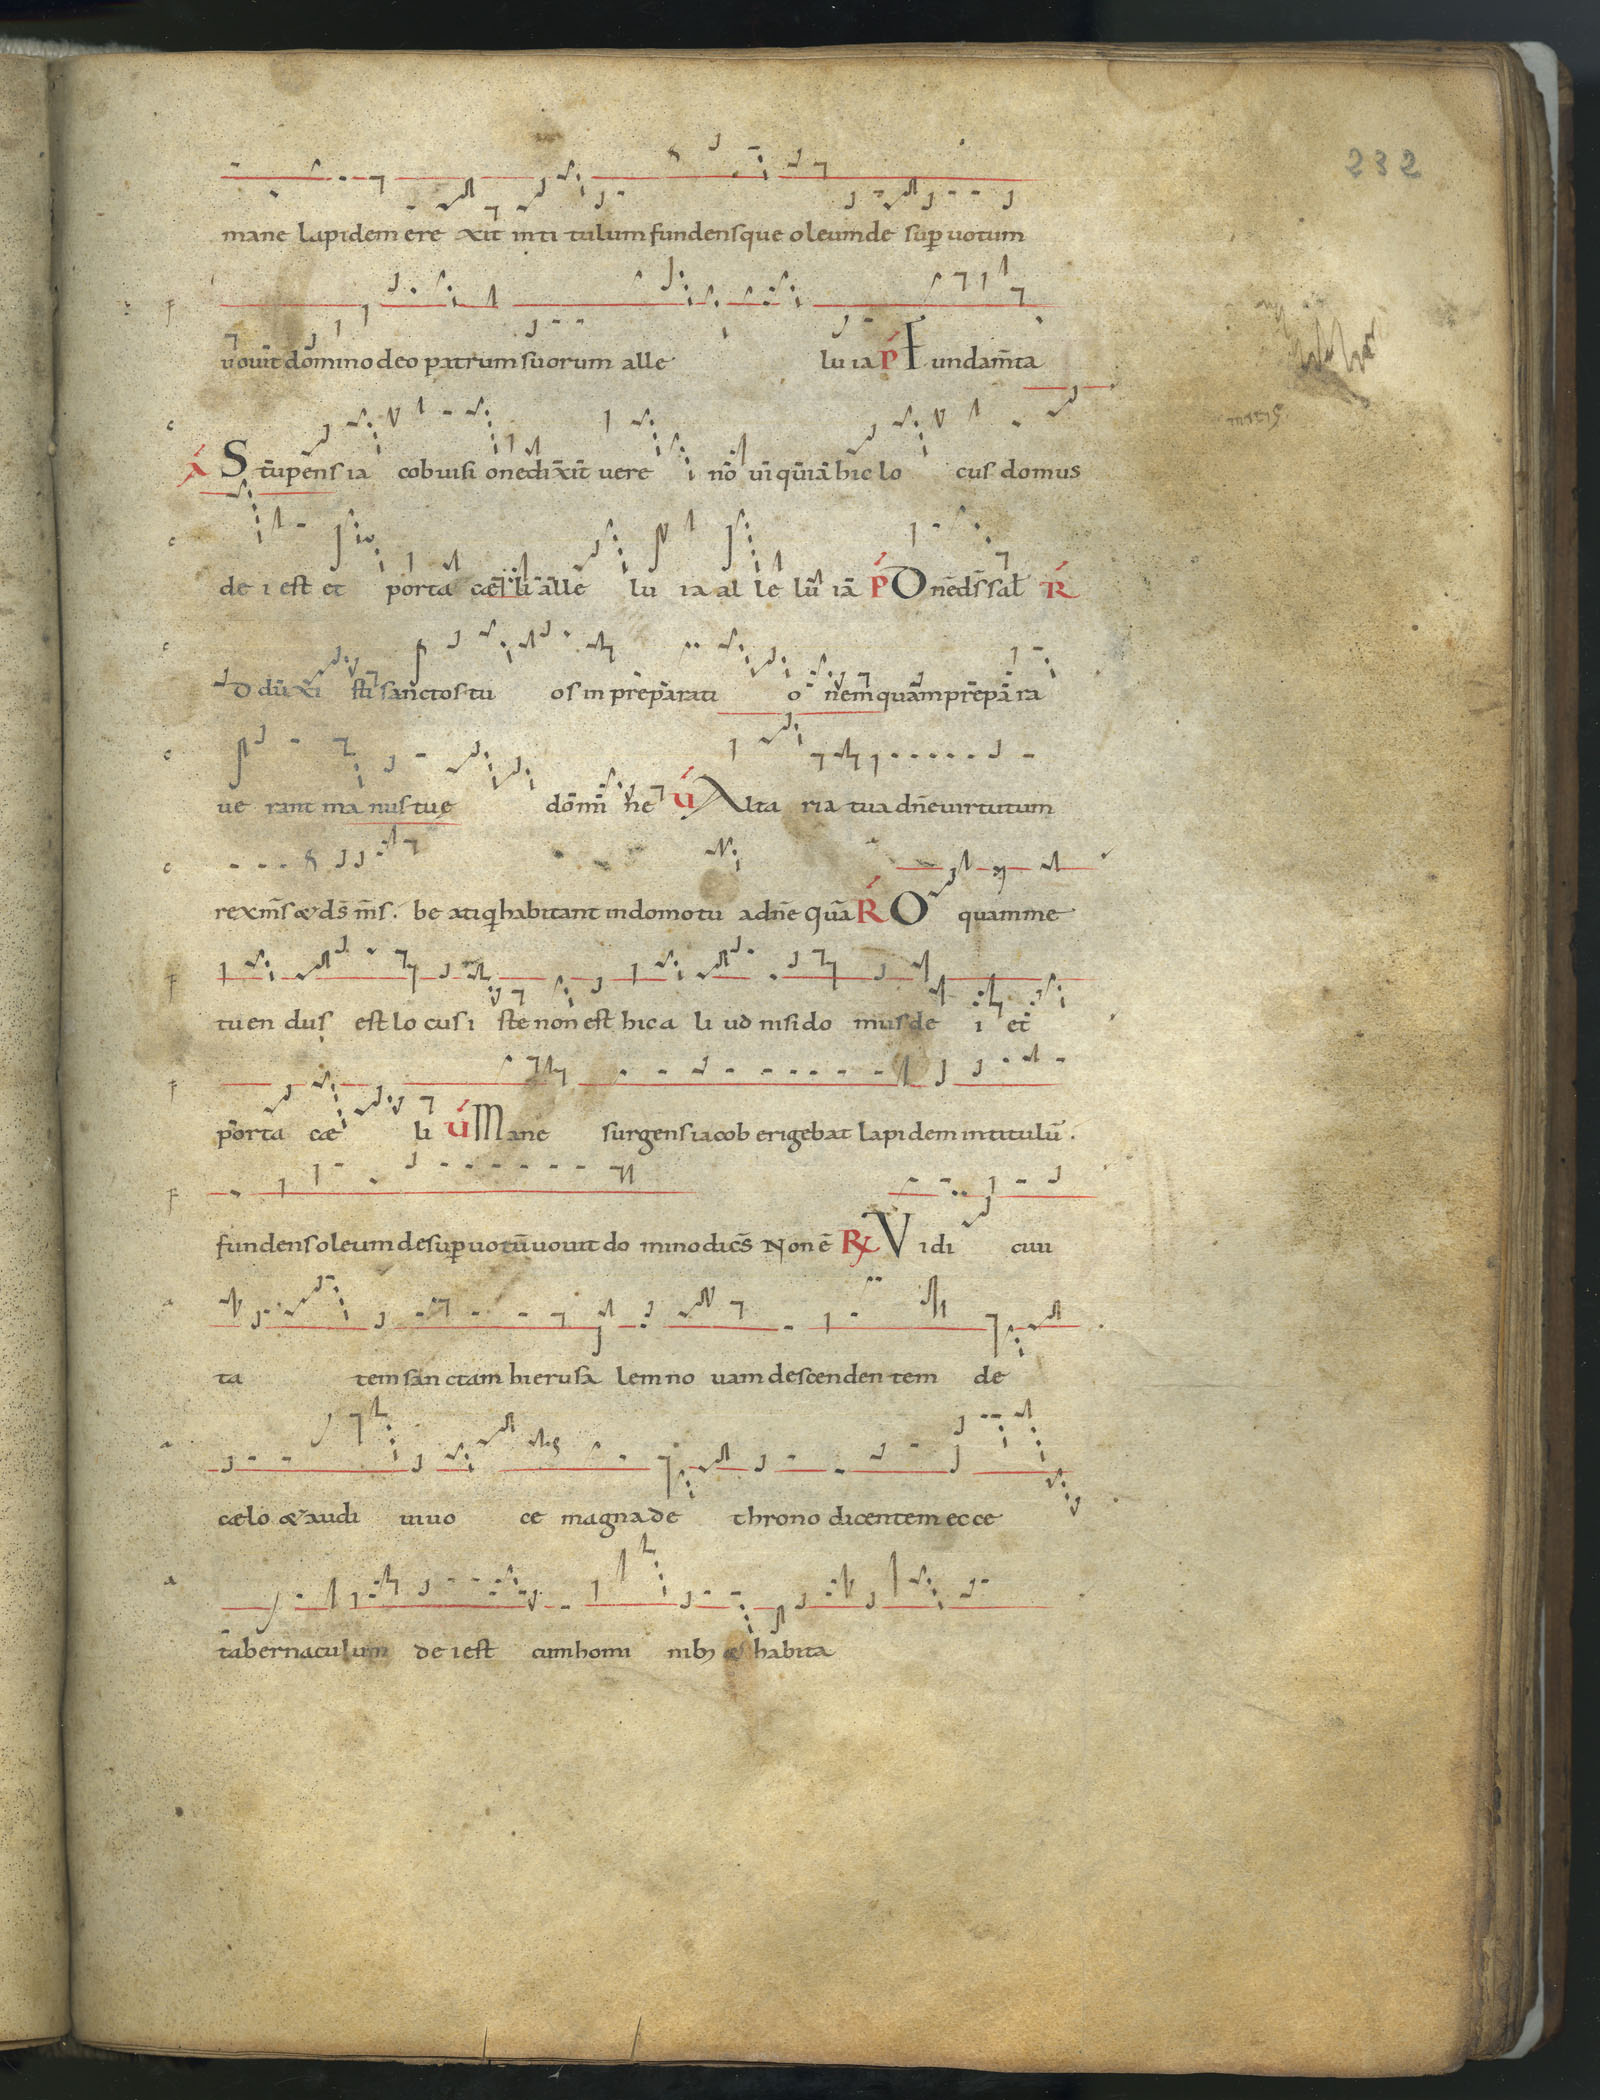 232
mane lapidem ere xit inti tulum fundensque oleum de sup uotum
uouit domino deo patrum suorum alle lu ia P Fundam̄ta
A Stupens ia cob uisi one dixit uere i no ui quia hic lo cus domus
de i est et porta cæ li alle lu ia al le lu ia P Dne d̄s sal R
Aduxi sti sanctos tu os in preparati o nem quam prepa ra
ue rant ma nus tue domi ne V Alta ria tua dn̄e uirtutum
rex m̄s & d̄s m̄s. be ati q habitant in domo tu a dn̄e Quā R O quam me
tuen dus est lo cus i ste non est hic a li ud nisi do mus de i et
porta cæ li V Mane surgens iacob erigebat lapidem in titulū.
fundens oleum desup uotū uouit do mino dicēs Non ē R Vidi ciui
ta tem sanctam hierusa lem no uam descenden tem de
cælo & audi ui uo ce magna de throno dicentem ec ce
tabernaculum de i est cum homi nib; & habita